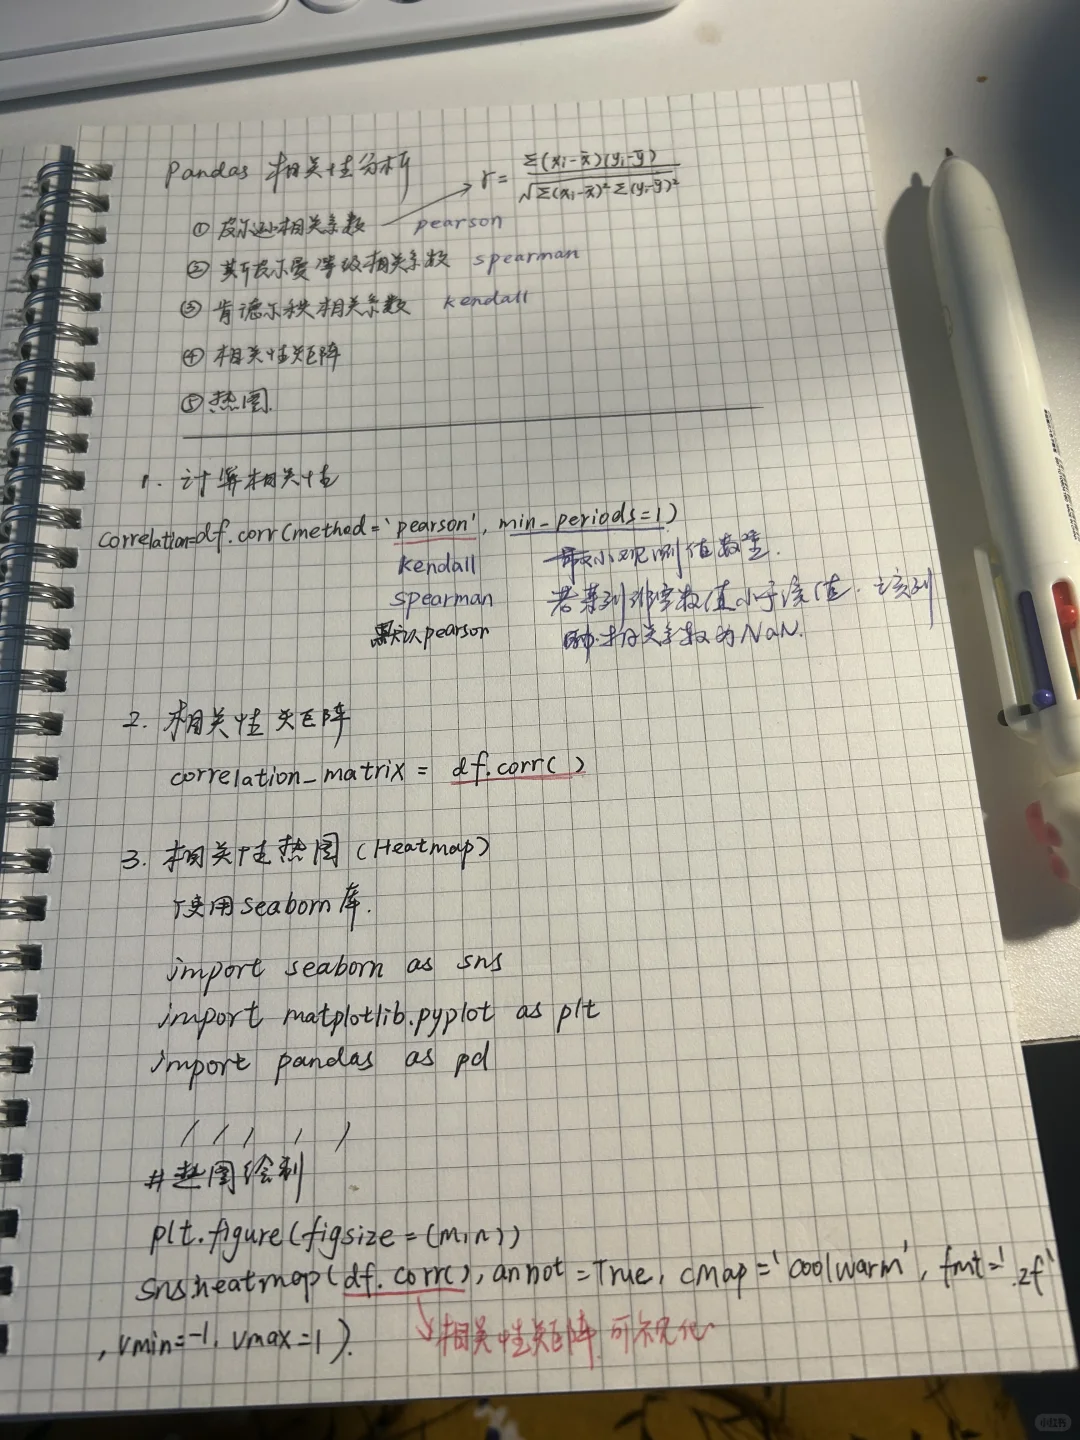 Pandas 相关性分析
r = Σ(xi-x̄)(yi-ȳ) / √Σ(xi-x̄)²Σ(yi-ȳ)²
① 皮尔逊相关系数 pearson
② 斯皮尔曼等级相关系数 spearman
③ 肯德尔秩相关系数 kendall
④ 相关性矩阵
⑤ 热图
1. 计算相关性
correlation=df.corr(method='pearson', min_periods=1)
kendall 最小观测值数量.
spearman 若某列非空数值小于该值. 该列
默认pearson 相关系数为NaN.
2. 相关性矩阵
correlation_matrix = df.corr()
3. 相关性热图 (Heatmap)
使用seaborn库.
import seaborn as sns
import matplotlib.pyplot as plt
import pandas as pd
#热图绘制
plt.figure(figsize=(m,n))
sns.heatmap(df.corr(), annot=True, cmap='coolwarm', fmt='.2f'
, vmin=-1, vmax=1).
相关性矩阵可视化
小红书